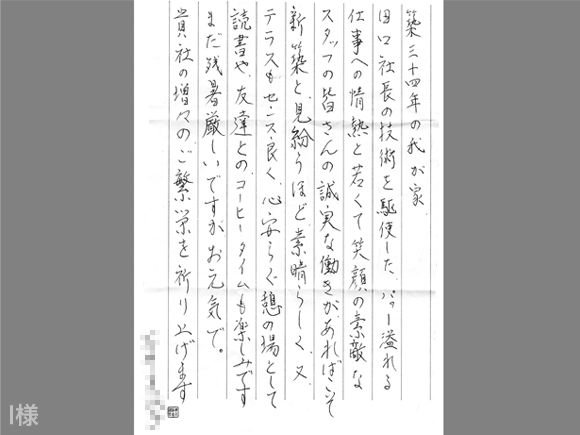 築三十四年の我が家
田口社長の技術を駆使した、パワー溢れる
仕事への情熱と若くて笑顔の素敵な
スタッフの皆さんの誠実な働きがあればこそ
新築と見紛うほど素晴らしく、又、
テラスもセンス良く、心安らぐ憩の場として
読書や、友達とのコーヒータイムも楽しみです
まだ残暑厳しいですがお元気で。
貴社の増々のご繁栄を祈り上げます
I様